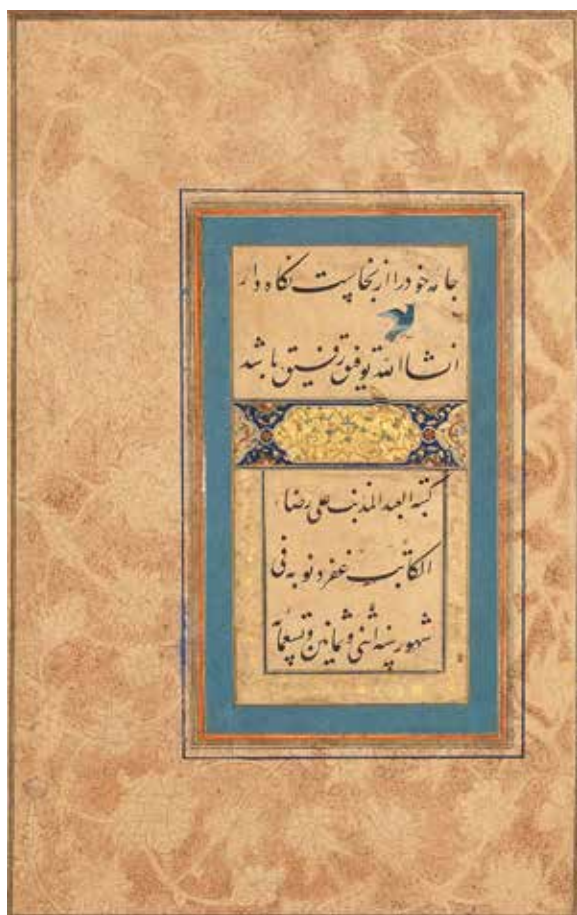 جامه خود را از نجاست نگاه دار
انشاالله توفیق رفیق باشد
کتبه العبد المذنب علی رضا
الکاتب غفر ذنوبه فی
شهور سنه اثنی و ثمانین و تسعمآة